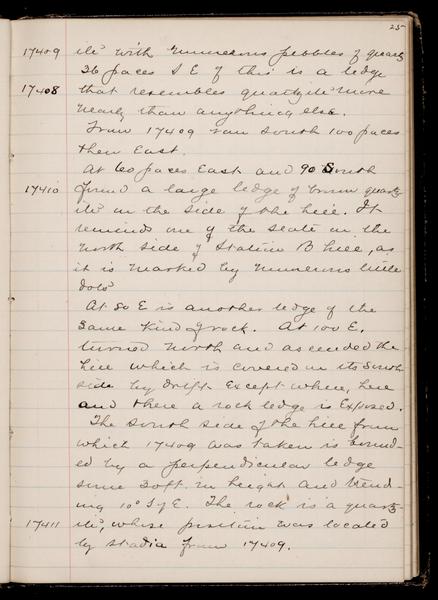 25
17409 ite with numerous pebbles of quartz
36 paces S E of this is a ledge
17408 that resembles quartzite more
nearly than anything else.
From 17409 ran south 100 paces
then East.
At 60 paces East and 90 South
17410 found a large ledge of brown quartz-
ite on the side of the hill. It
reminds one of the slate on the
north side of Station B hill, as
it is marked by numerous little
dots.
At 80 E is another ledge of the
same kind of rock. At 100 E.
turned north and ascended the
hill which is covered on its South
side by drift except where, here
and there a rock ledge is exposed.
The south side of the hill from
which 17409 was taken is bound-
ed by a perpendicular ledge
some 30ft. in height and trend-
ing 10° S of E. The rock is a quartz-
17411 ite, whose position was located
by stadia from 17409.